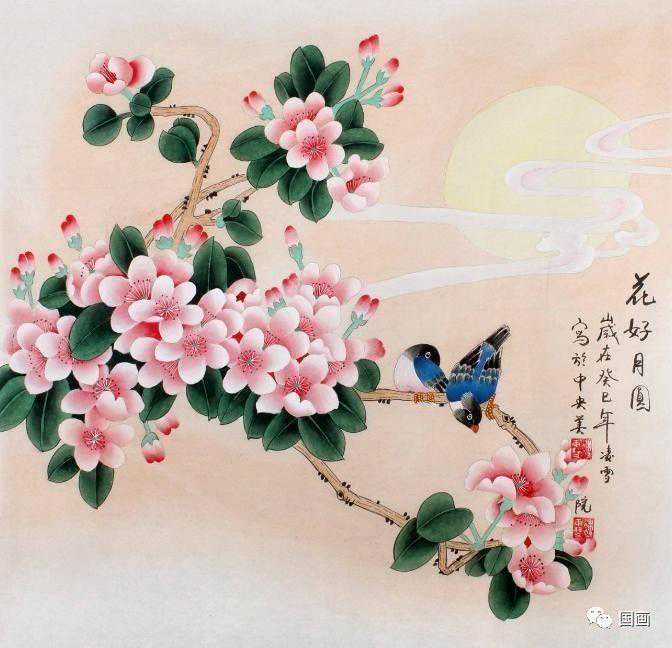 花好月圓
嵗在癸巳年凌雪
写於中央美院
国画